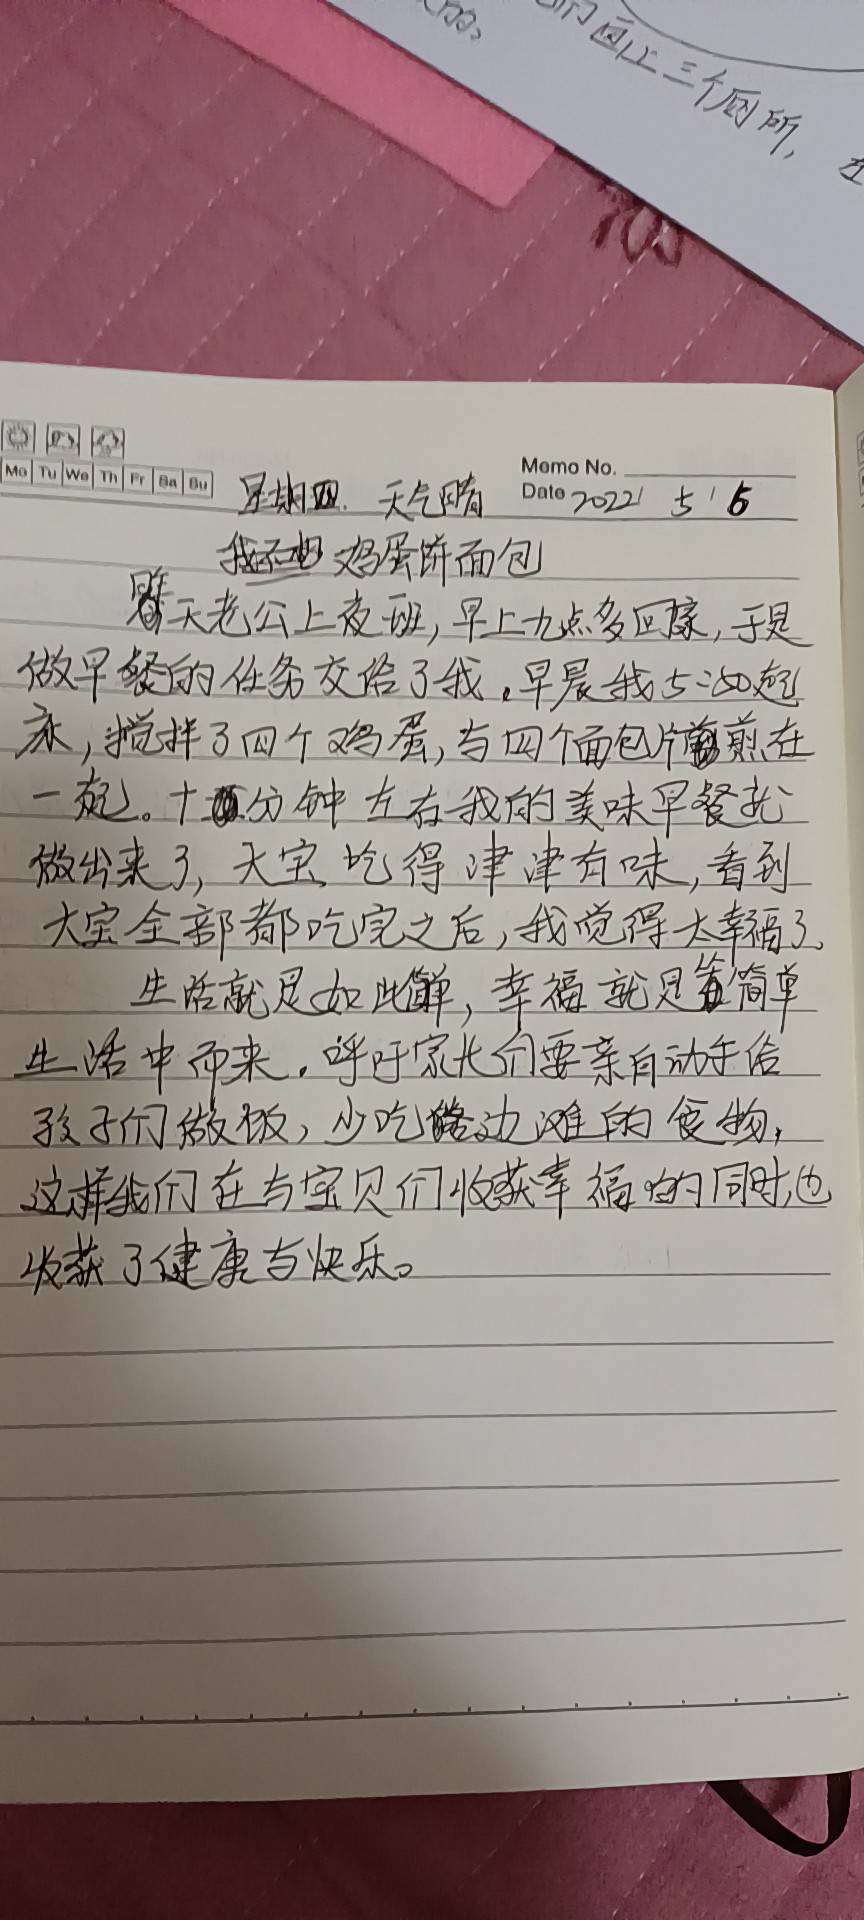 们画上三个厕所，在
Mo Tu We Th Fr Sa Su
Memo No.
星期四. 天气晴
Date 2022 5 5
鸡蛋饼面包
昨天老公上夜班，早上九点多回家，于是
做早餐的任务交给了我。早晨我5:50起
床，搅拌了四个鸡蛋，与四个面包片煎在
一起。十分钟左右我的美味早餐就
做出来了，大宝吃得津津有味，看到
大宝全部都吃完之后，我觉得太幸福了、
生活就是如此简单，幸福就是简单
生活中而来。呼吁家长们要亲自动手给
孩子们做饭，少吃路边滩的食物，
这样我们在与宝贝们收获幸福的同时，也
收获了健康与快乐。